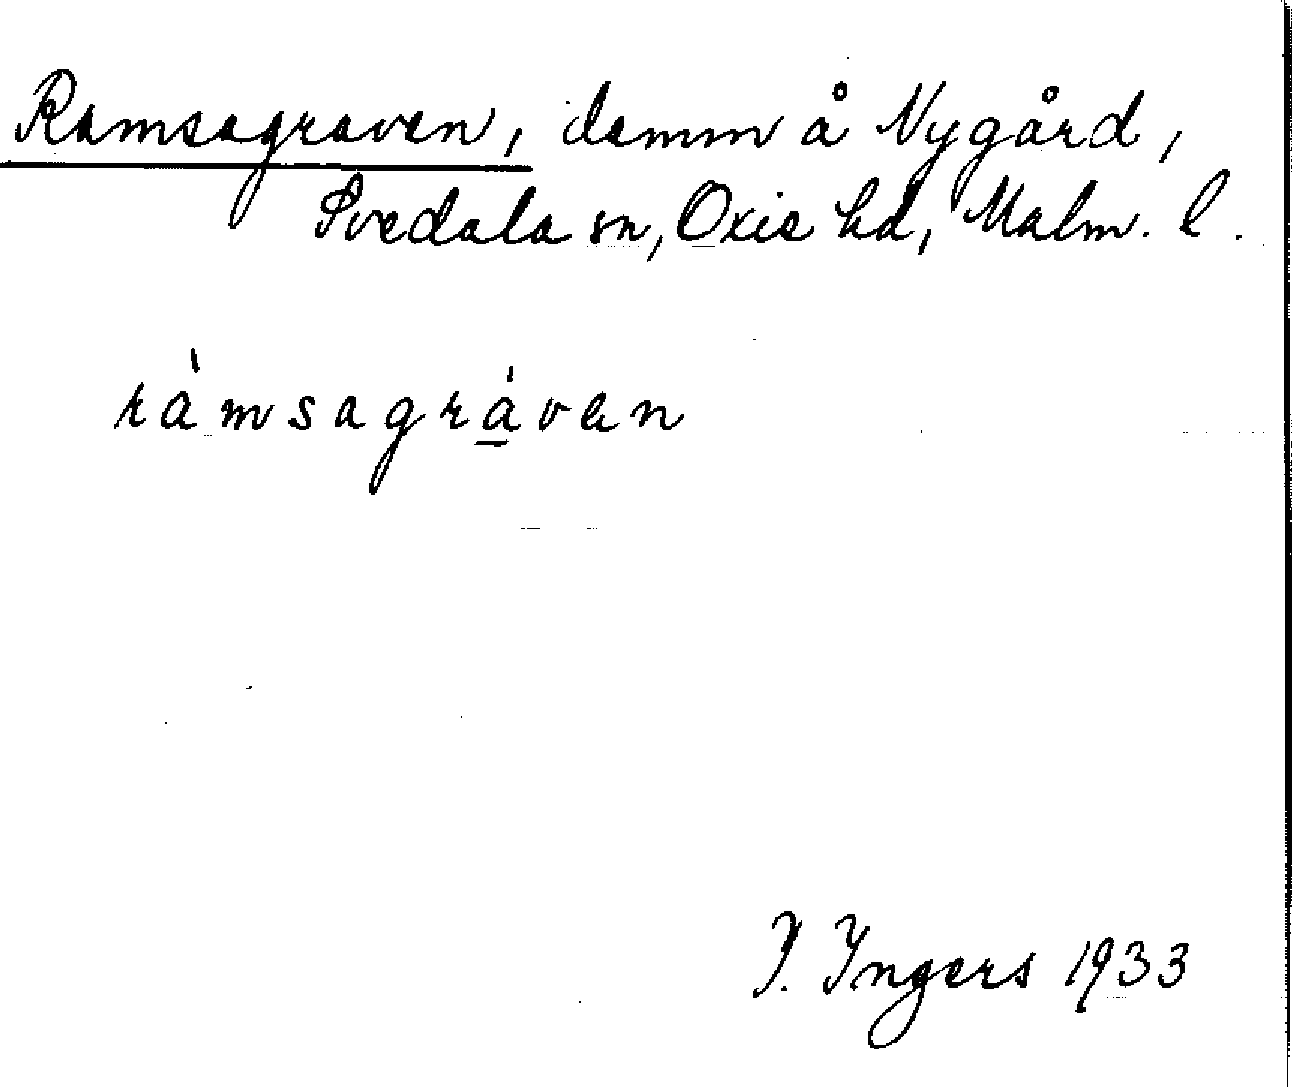 Ramsagraven, damm å Nygård,
Svedala sn, Oxie hd, Malm. l.
ràmsagrá̱ven
I. Ingers 1933